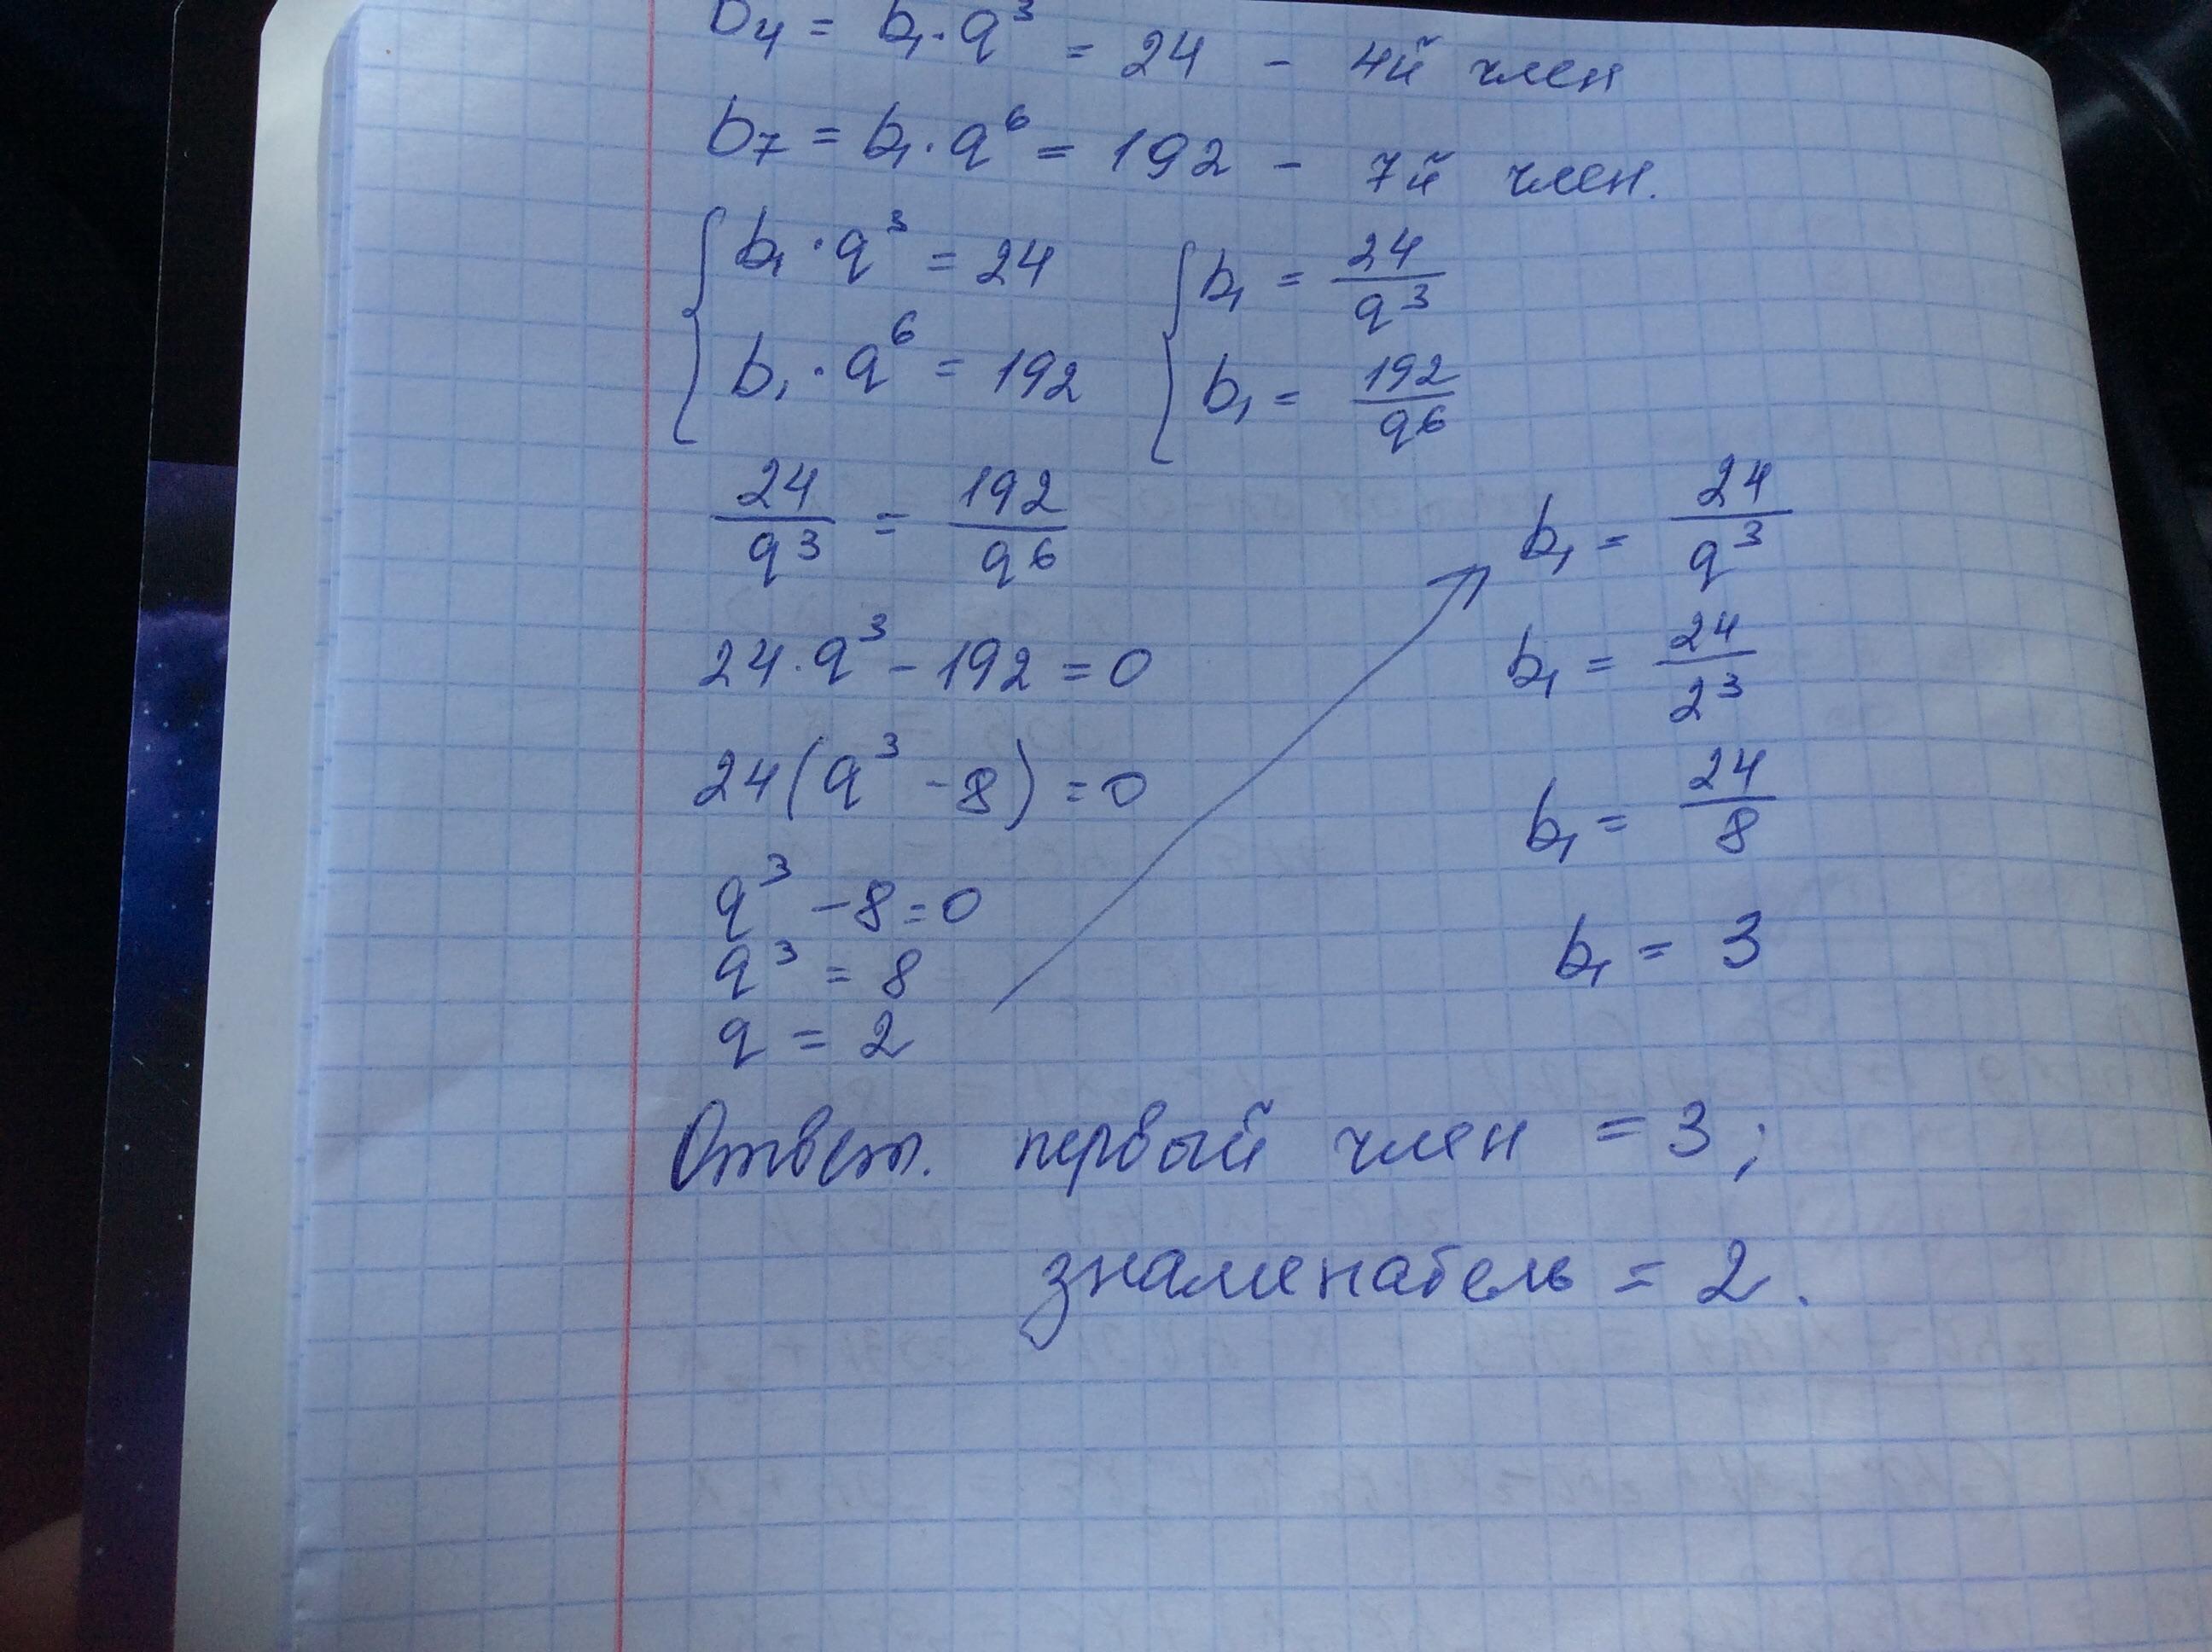 b₄ = b₁ · q³ = 24 - 4й член
b₇ = b₁ · q⁶ = 192 - 7й член.
{ b₁ · q³ = 24 { b₁ = 24/q³
b₁ · q⁶ = 192 b₁ = 192/q⁶
24/q³ = 192/q⁶
24 · q³ - 192 = 0
24(q³ - 8) = 0
q³ - 8 = 0
q³ = 8
q = 2
b₁ = 24/q³
b₁ = 24/2³
b₁ = 24/8
b₁ = 3
Ответ. первый член = 3;
знаменатель = 2.